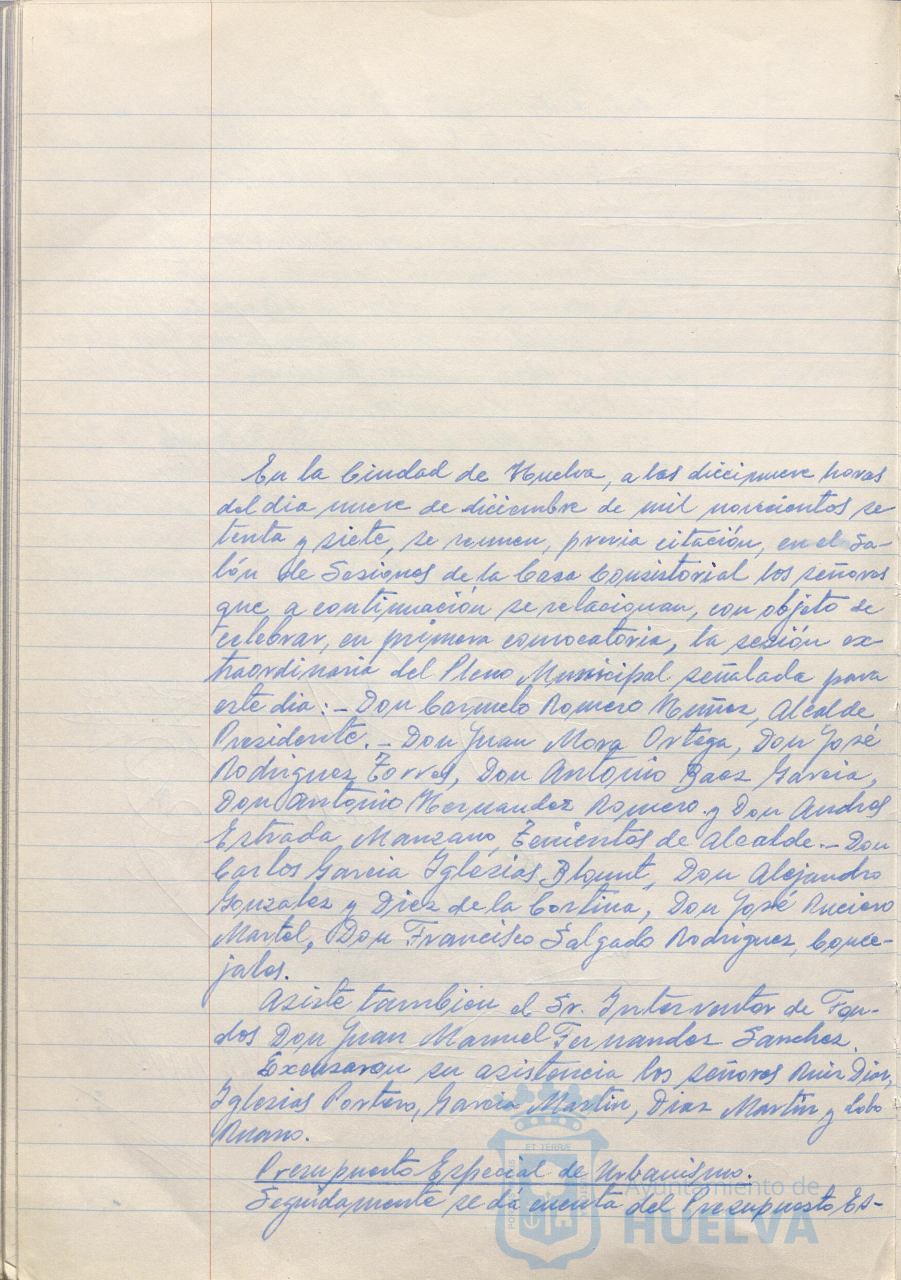 En la Ciudad de Huelva, a las diecinueve horas
del dia nueve de diciembre de mil novecientos se
tenta y siete, se reunen, previa citación, en el Sa-
lón de Sesiones de la Casa Consistorial los señores
que a continuación se relacionan, con objeto de
celebrar, en primera convocatoria, la sesión ex-
traordinaria del Pleno Municipal señalada para
este dia: - Don Carmelo Romero Núñez, Alcalde
Presidente. - Don Juan Mora Ortega, Don José
Rodriguez Torres, Don Antonio Baez Garcia,
Don Antonio Hernandez Romero y Don Andres
Estrada Manzano, Tenientes de Alcalde. - Don
Carlos Garcia Iglesias Blount, Don Alejandro
Gonzalez y Diez de la Cortina, Don José Ruciero
Martel, Don Francisco Salgado Rodriguez, Conce-
jales.
Asiste también el Sr. Interventor de Fon-
dos Don Juan Manuel Fernandez Sanchez.
Excusaron su asistencia los señores Ruiz Diaz,
Iglesias Portero, Garcia Martin, Diaz Martin y Lobo
Ruano.
Presupuesto Especial de Urbanismo.
Seguidamente se da cuenta del Presupuesto Es-
Ayuntamiento de
HUELVA